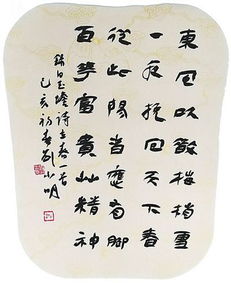 東風吹散梅梢雪
一夜挽回天下春
從此陽春應有腳
百華富貴艸精神
錄白玉蟾詩立春一首
己亥初春小明